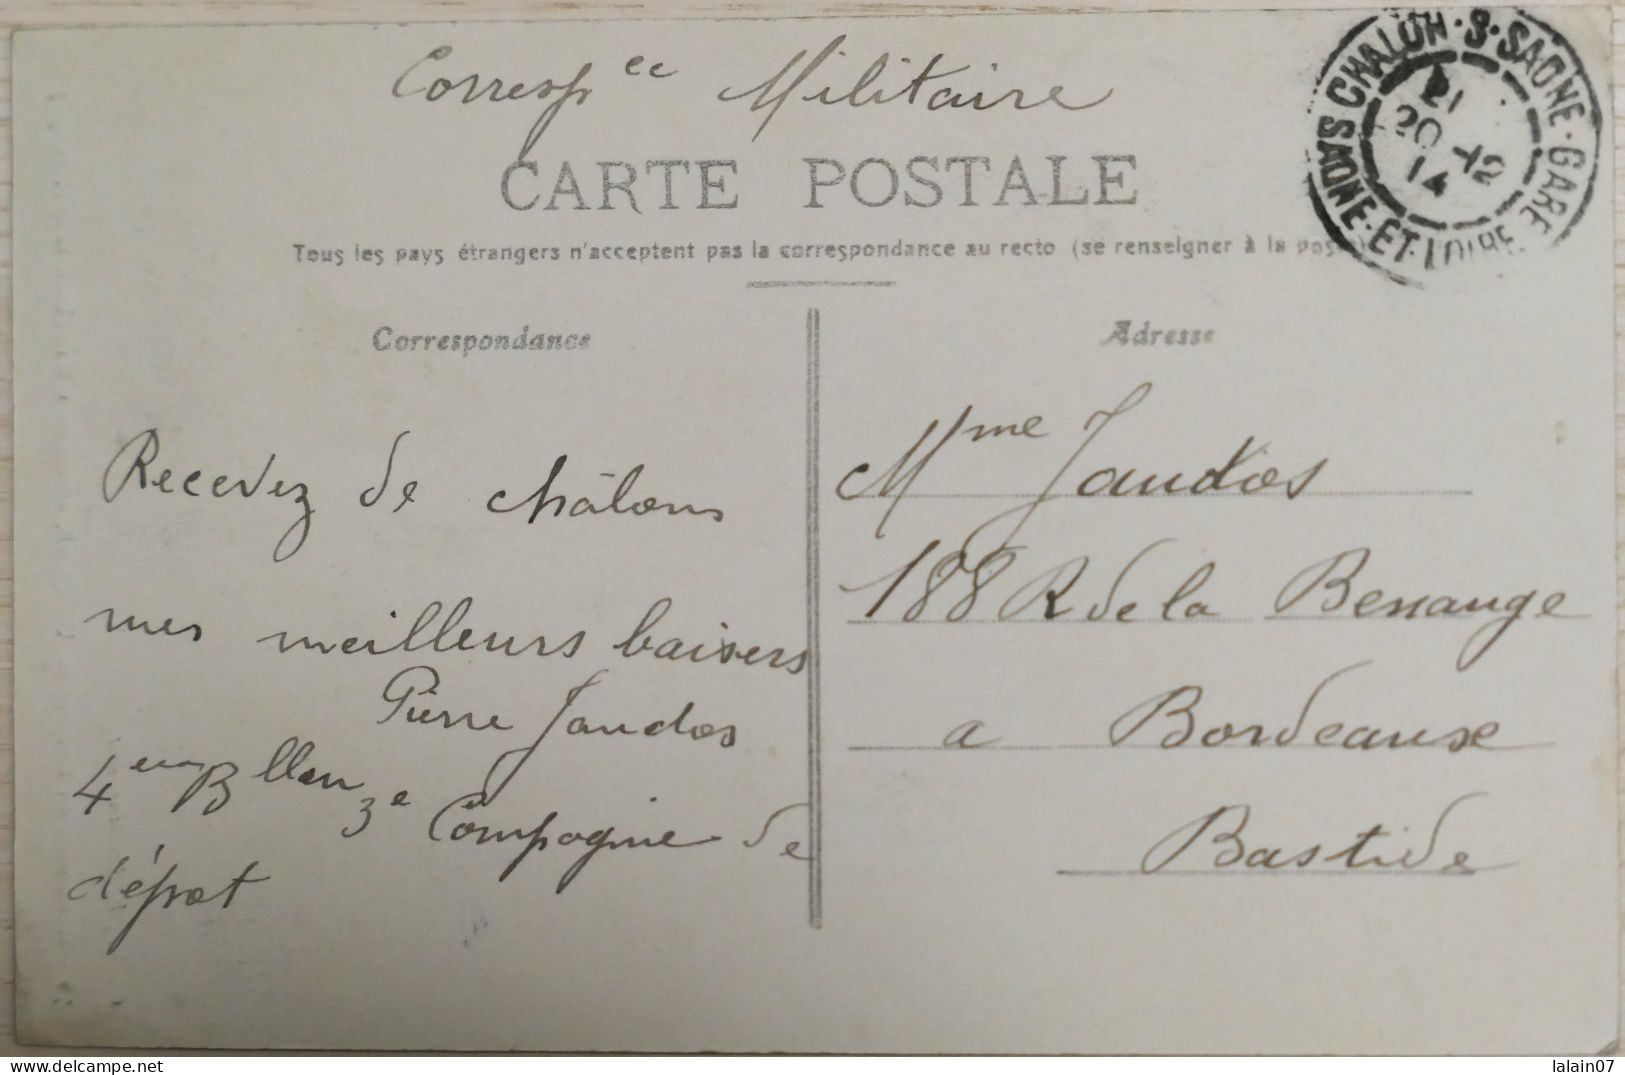 Corresp ce Militaire
CHALON·S·SAONE·GARE
SAONE-ET-LOIRE
21
20 -12
14
CARTE POSTALE
Tous les pays étrangers n'acceptent pas la correspondance au recto (se renseigner à la poste)
Correspondance
Adresse
Recevez de châlons
mes meilleurs baisers
Pierre Jaudos
4eme Bllon 3e Compagnie de
dépot
Mme Jaudos
188 R de la Benauge
a Bordeause
Bastide
lalain07